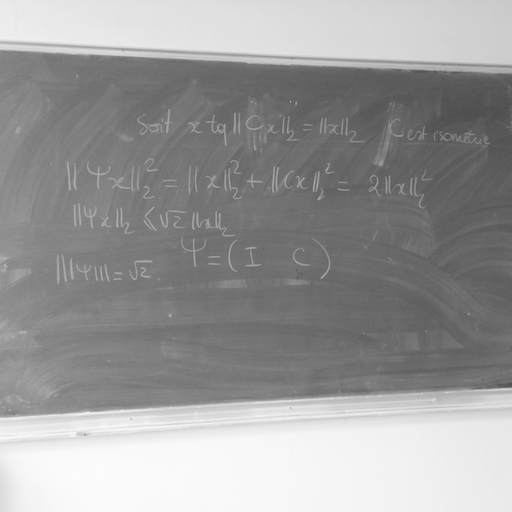 Soit x tq ||Cx||₂ = ||x||₂ C est isométrie
||Ψx||₂² = ||x||₂² + ||Cx||₂² = 2||x||₂²
||Ψx||₂ ⩽ √2 ||x||₂
|||Ψ||| = √2. Ψ = (I C)